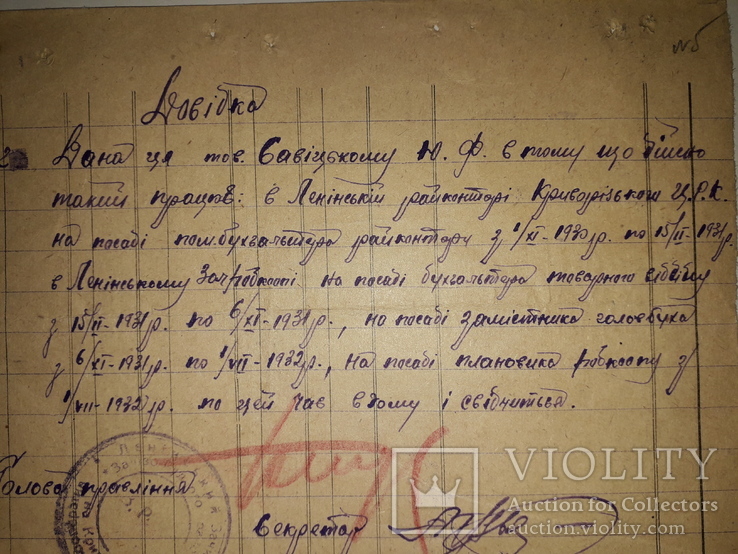 №5
Довідка
Дана ця тов. Савіцькому Ю. Ф. в тому що дійсно
такий працює: в Ленінській райконторі Криворізького Ц.Р.К.
на посаді пом.бухгальтера райконтори з 1/XI-1930р. по 15/II-1931р.
в Ленінському на посаді бухгальтера товарного відділу
з 15/II-1931р. по 6/XI-1931р., на посаді замістника головбуха
з 6/XI-1931р. по 1/VII-1932р., на посаді плановика робкоопу з
1/VII-1932р. по цей час в чому і свідчиться.
Голова правління
Секретар
VIOLITY
Auction for Collectors
auction.violity.com